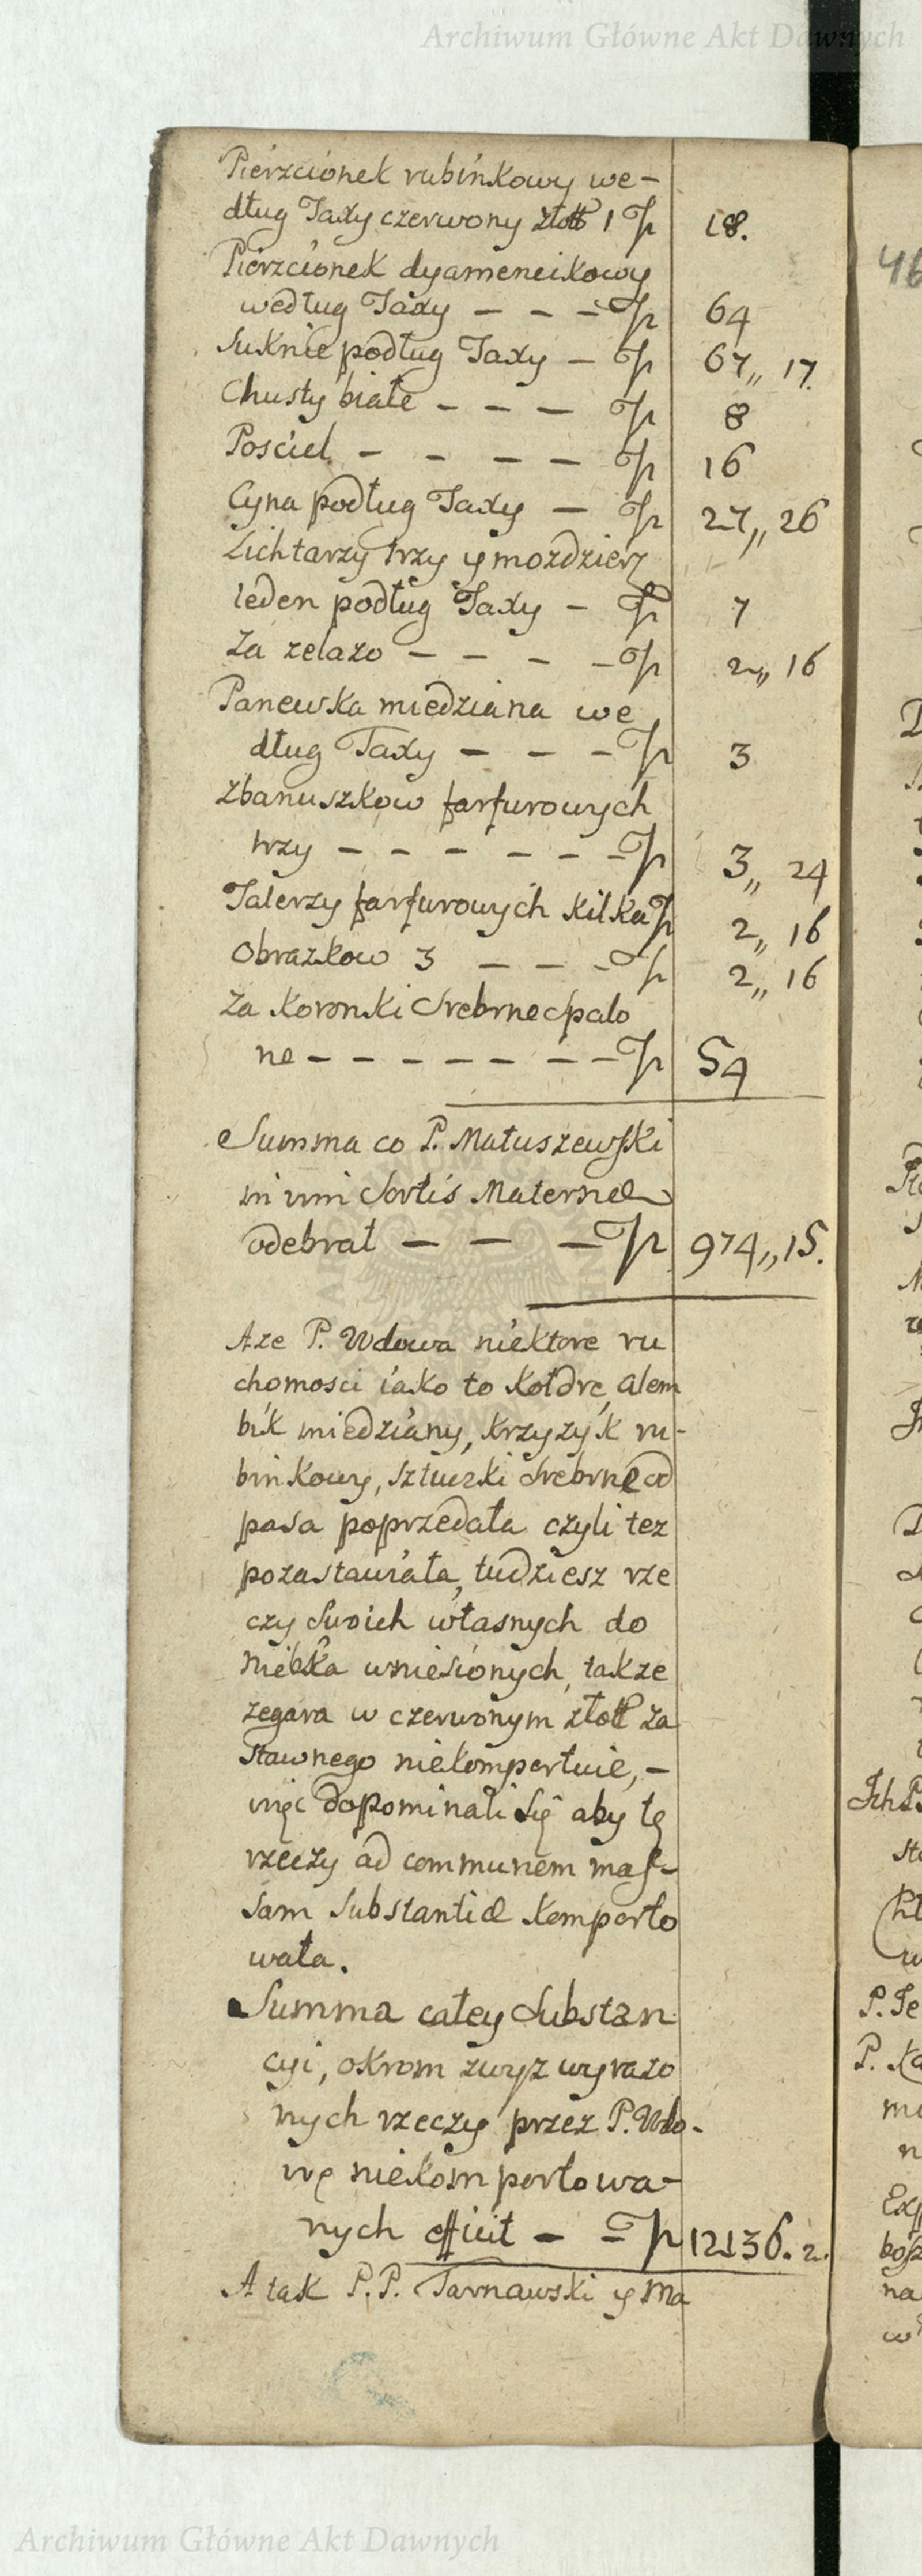 Archiwum Główne Akt Dawnych
Pierzcionek rubinkowy we-
dług Taxy czerwony złott 1 Tp 18.
46
Pierzcionek dyamencikowy
według Taxy - - - Tp 64
Suknie podług Taxy - Tp 67,, 17.
Chusty białe - - - Tp 8
Posciel - - - - Tp 16
Cyna podług Taxy - Tp 27,, 26
Lichtarzy trzy y mozdzierz
ieden podług Taxy - Tp 7
Za zelazo - - - - Tp 2,, 16
Panewka miedziana we
dług Taxy - - - Tp 3
Zbanuszkow farfurowych
trzy - - - - - - - Tp 3,, 24
Talerzy farfurowych kilka Tp 2,, 16
Obrazkow 3 - - - Tp 2,, 16
Za Koronki Srebrne spalo
ne - - - - - - - Tp 54
Summa co P. Matuszewski
in vim Sortis Maternae
odebrał - - - Tp 974,, 15.
Aze P. Wdowa niektore ru
chomosci iako to Kołdrę, alem
bik miedziany, krzyzyk ru-
binkowy, sztuczki Srebrne od
pasa poprzedała czyli tez
pozastawiała, tudziesz rze
czy Swoich własnych do
niebka wniesionych, takze
zegara w czerwonym złott za
stawnego niekomportuie, -
więc dopominali się aby tę
rzeczy ad communem mas-
sam Substantiae komporto
wała.
Summa całey Substan
cyi, okrom zwyz wyrazo
nych rzeczy przez P. Wdo-
wę niekomportowa-
nych efficit - - Tp 12136. 2.
A tak P.P. Tarnawski y Ma
Archiwum Główne Akt Dawnych